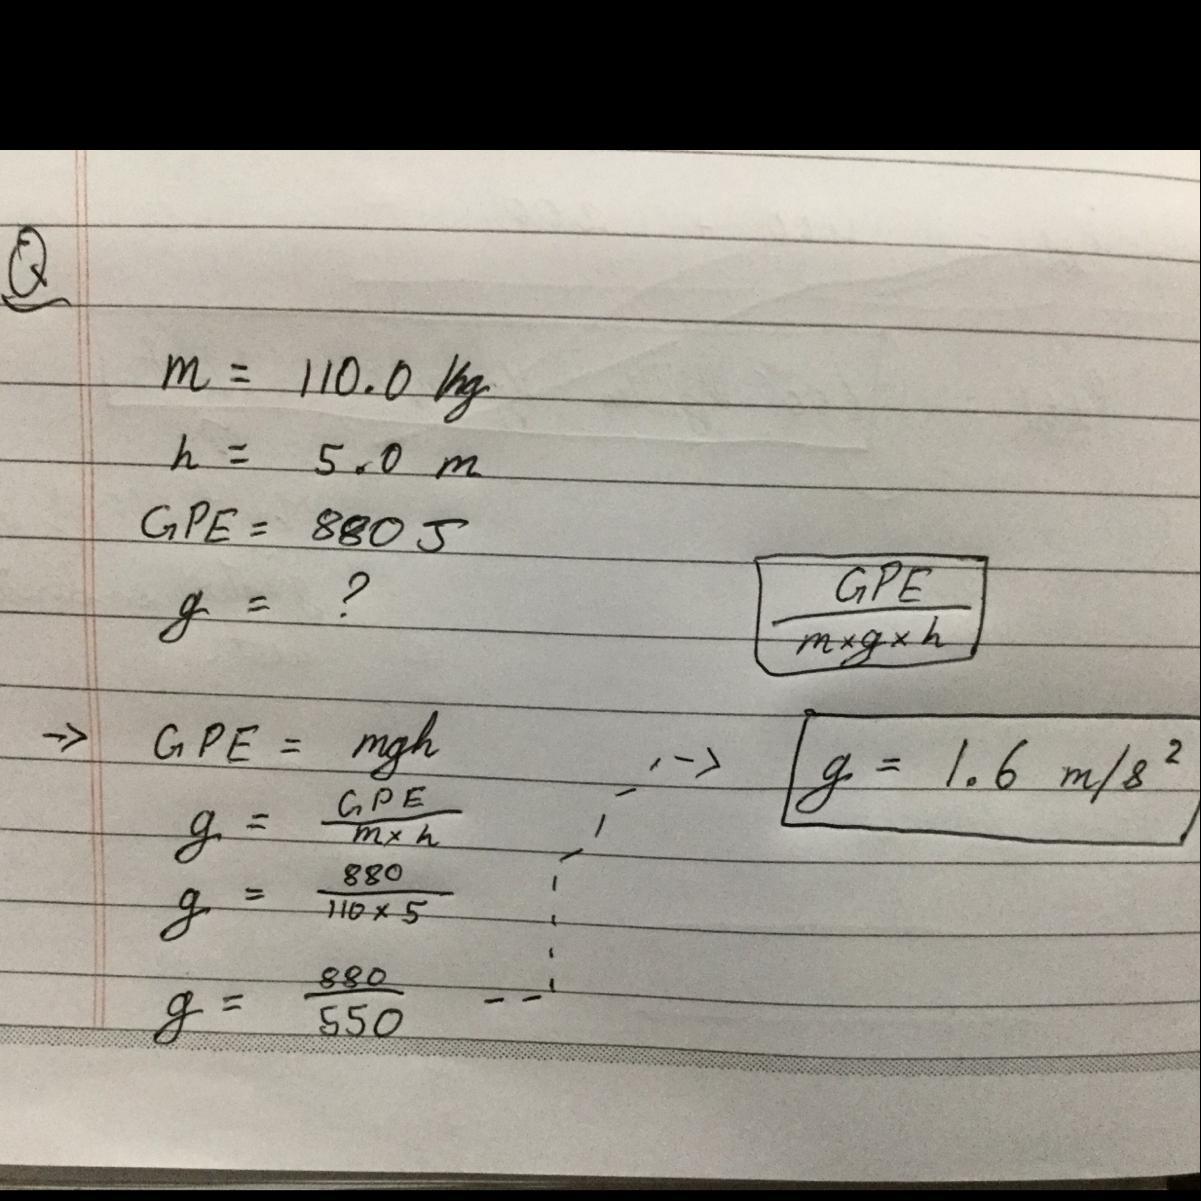 Q
m = 110.0 kg
h = 5.0 m
GPE = 880 J
g = ?
GPE
m×g×h
-> GPE = mgh
g = GPE / m× h
g = 880 / 110 × 5
g = 880 / 550
-> g = 1.6 m/s²